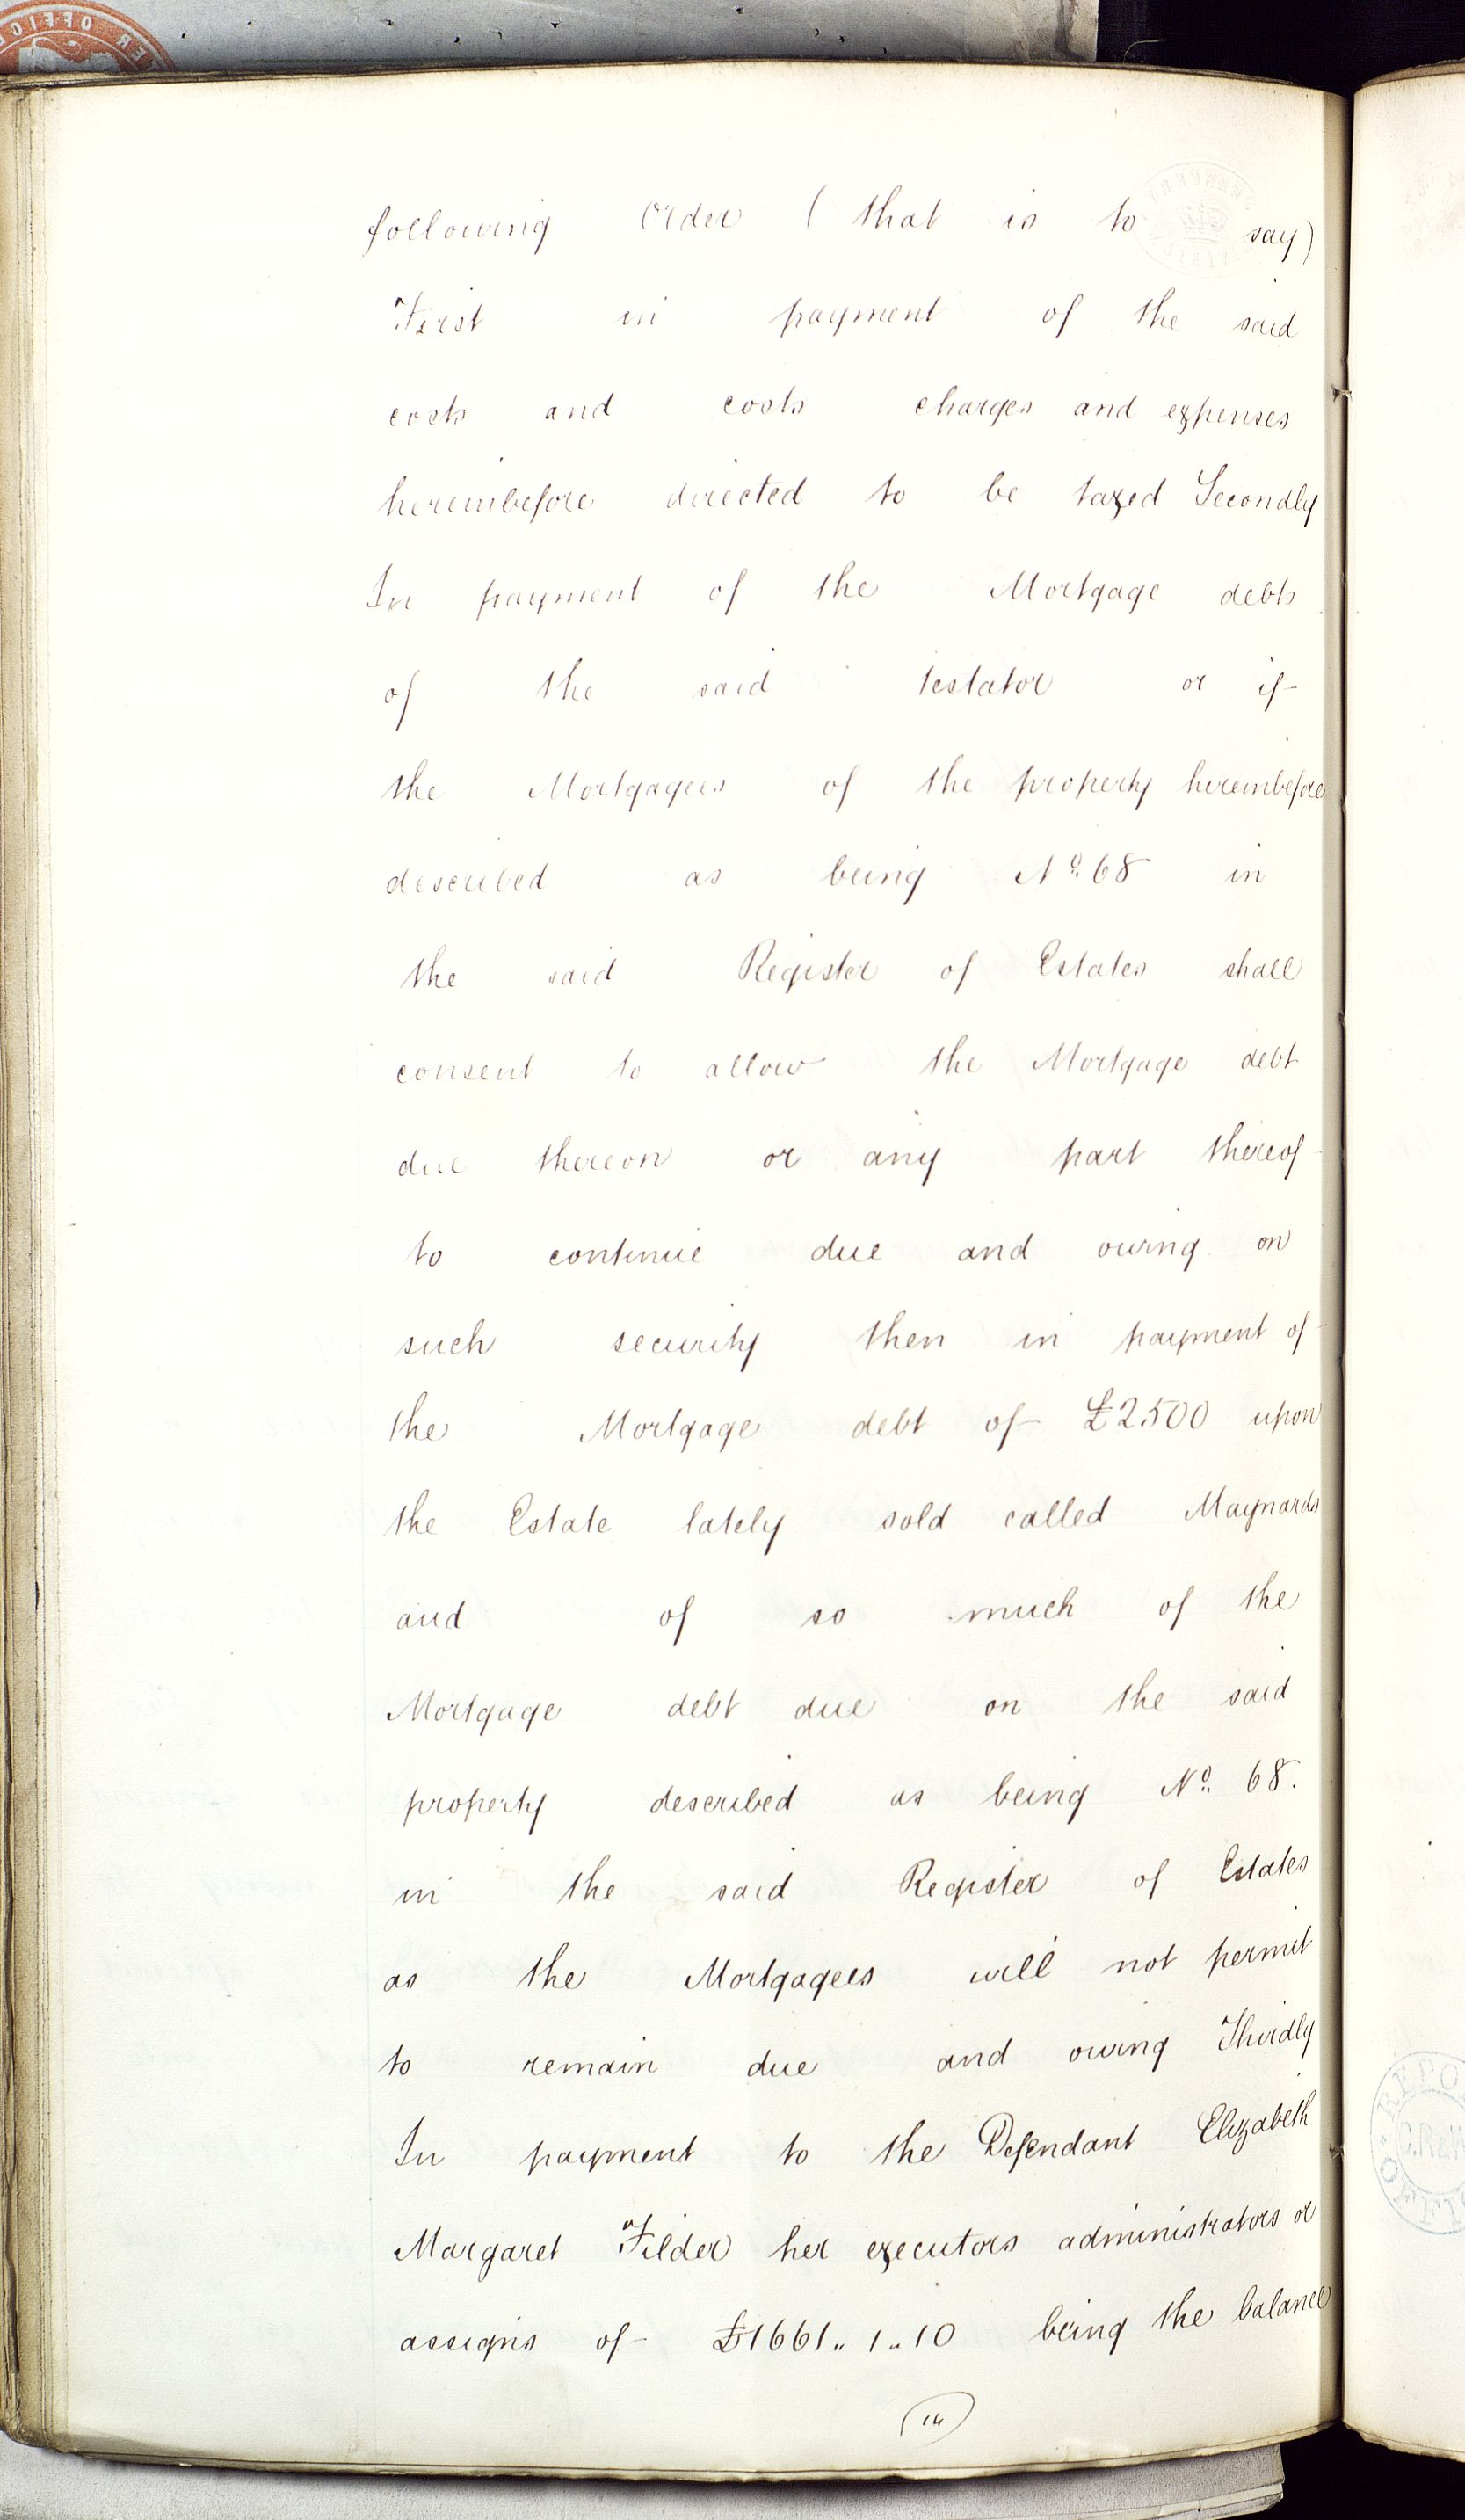 following Order (that is to say)
First in payment of the said
costs and costs charges and expenses
hereinbefore directed to be taxed Secondly
In payment of the Mortgage debts
of the said testator or if
the Mortgagees of the property hereinbefore
described as being No. 68 in
the said Register of Estates shall
consent to allow the Mortgage debt
due thereon or any part thereof
to continue due and owing on
such security then in payment of
the Mortgage debt of £2500 upon
the Estate lately sold called Maynards
and of so much of the
Mortgage debt due on the said
property described as being No. 68.
in the said Register of Estates
as the Mortgagees will not permit
to remain due and owing Thirdly
In payment to the Defendant Elizabeth
Margaret Filder her executors administrators or
assigns of £1661.. 1.. 10 being the balance